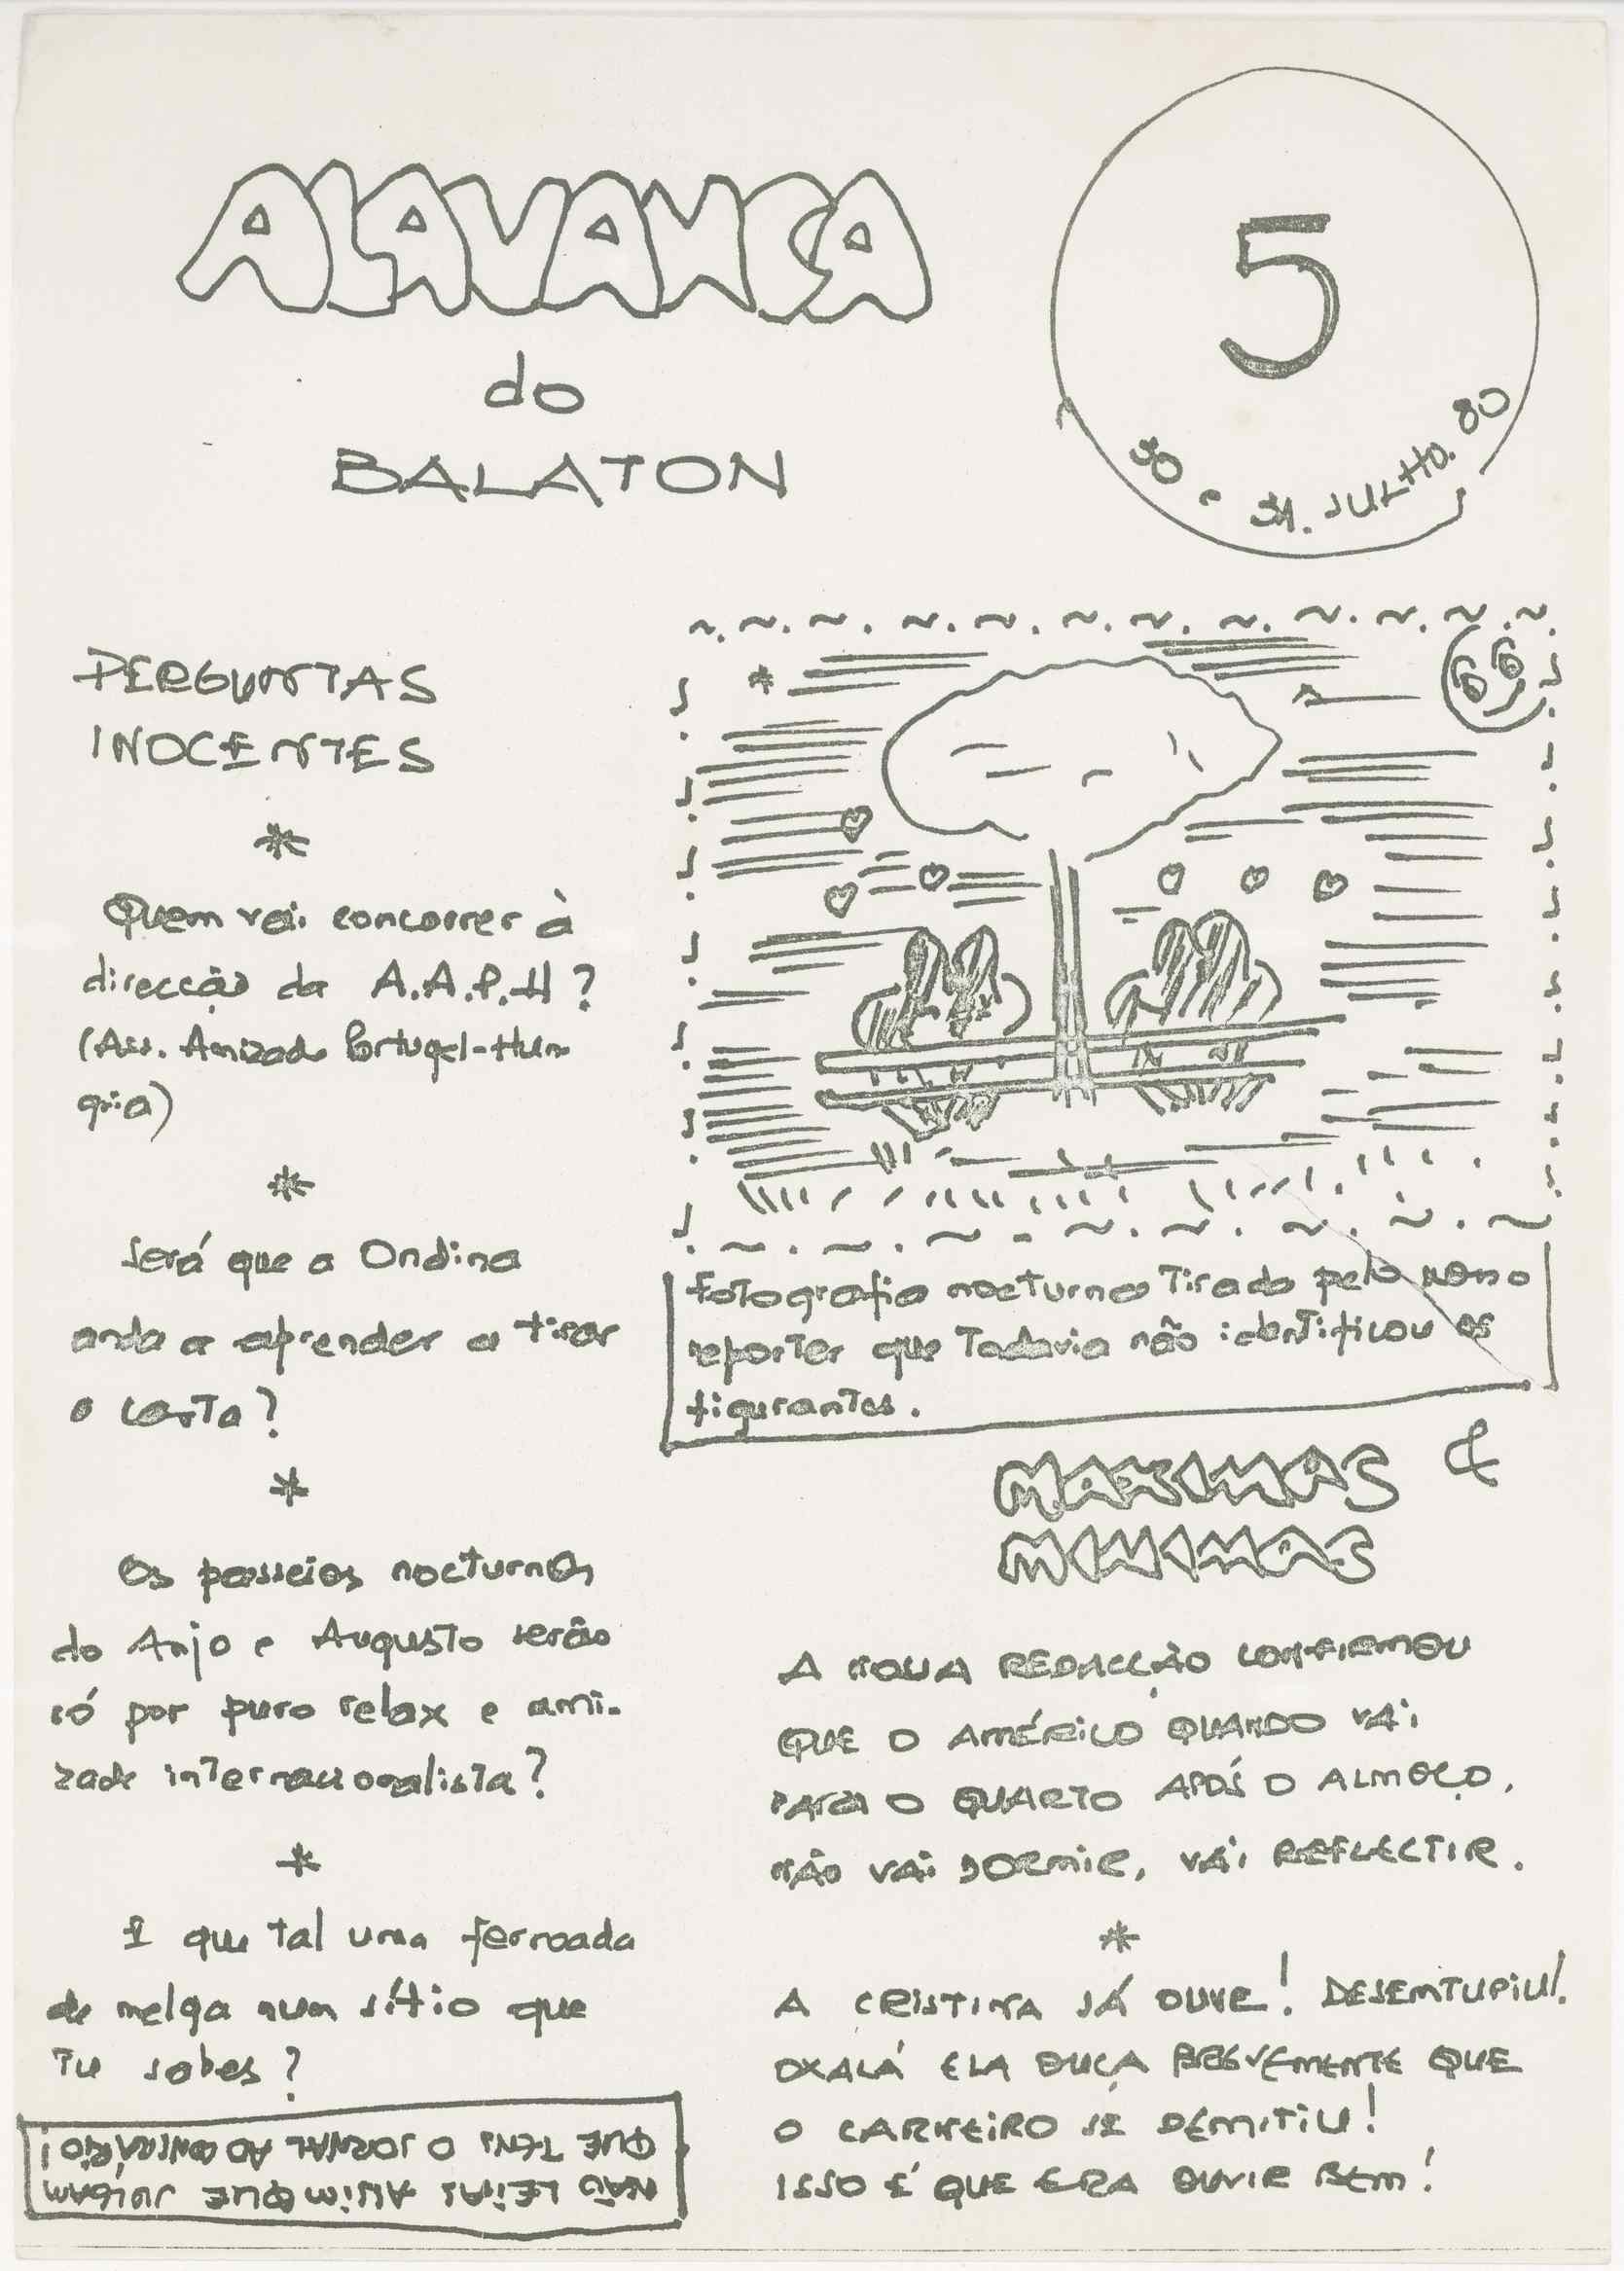 ALAVANCA
do
BALATON
5
30 e 31. JULHO. 80
PERGUNTAS
INOCENTES
*
Quem vai concorrer à
direcção da A.A.P.H?
(Ass. Amizade Portugal-Hun
gria)
*
Será que a Ondina
anda a aprender a tirar
a carta?
*
Os passeios nocturnos
do Anjo e Augusto serão
só por puro relax e ami-
zade internacionalista?
*
E que tal uma ferroada
de melga num sítio que
tu sabes?
NÃO LEIAS ASSIM QUE JULGAM
QUE TENS O JORNAL AO CONTRÁRIO!
Fotografia nocturna tirada pelo nosso
reporter que todavia não identificou os
figurantes.
MAXIMAS &
MINIMAS
A NOVA REDACÇÃO CONFIRMOU
QUE O AMÉRICO QUANDO VAI
PARA O QUARTO APÓS O ALMOÇO,
NÃO VAI DORMIR, VAI REFLECTIR.
*
A CRISTINA JÁ OUVE! DESENTUPIU!
OXALÁ ELA OUÇA BREVEMENTE QUE
O CARNEIRO SE DEMITIU!
ISSO É QUE ERA OUVIR BEM!